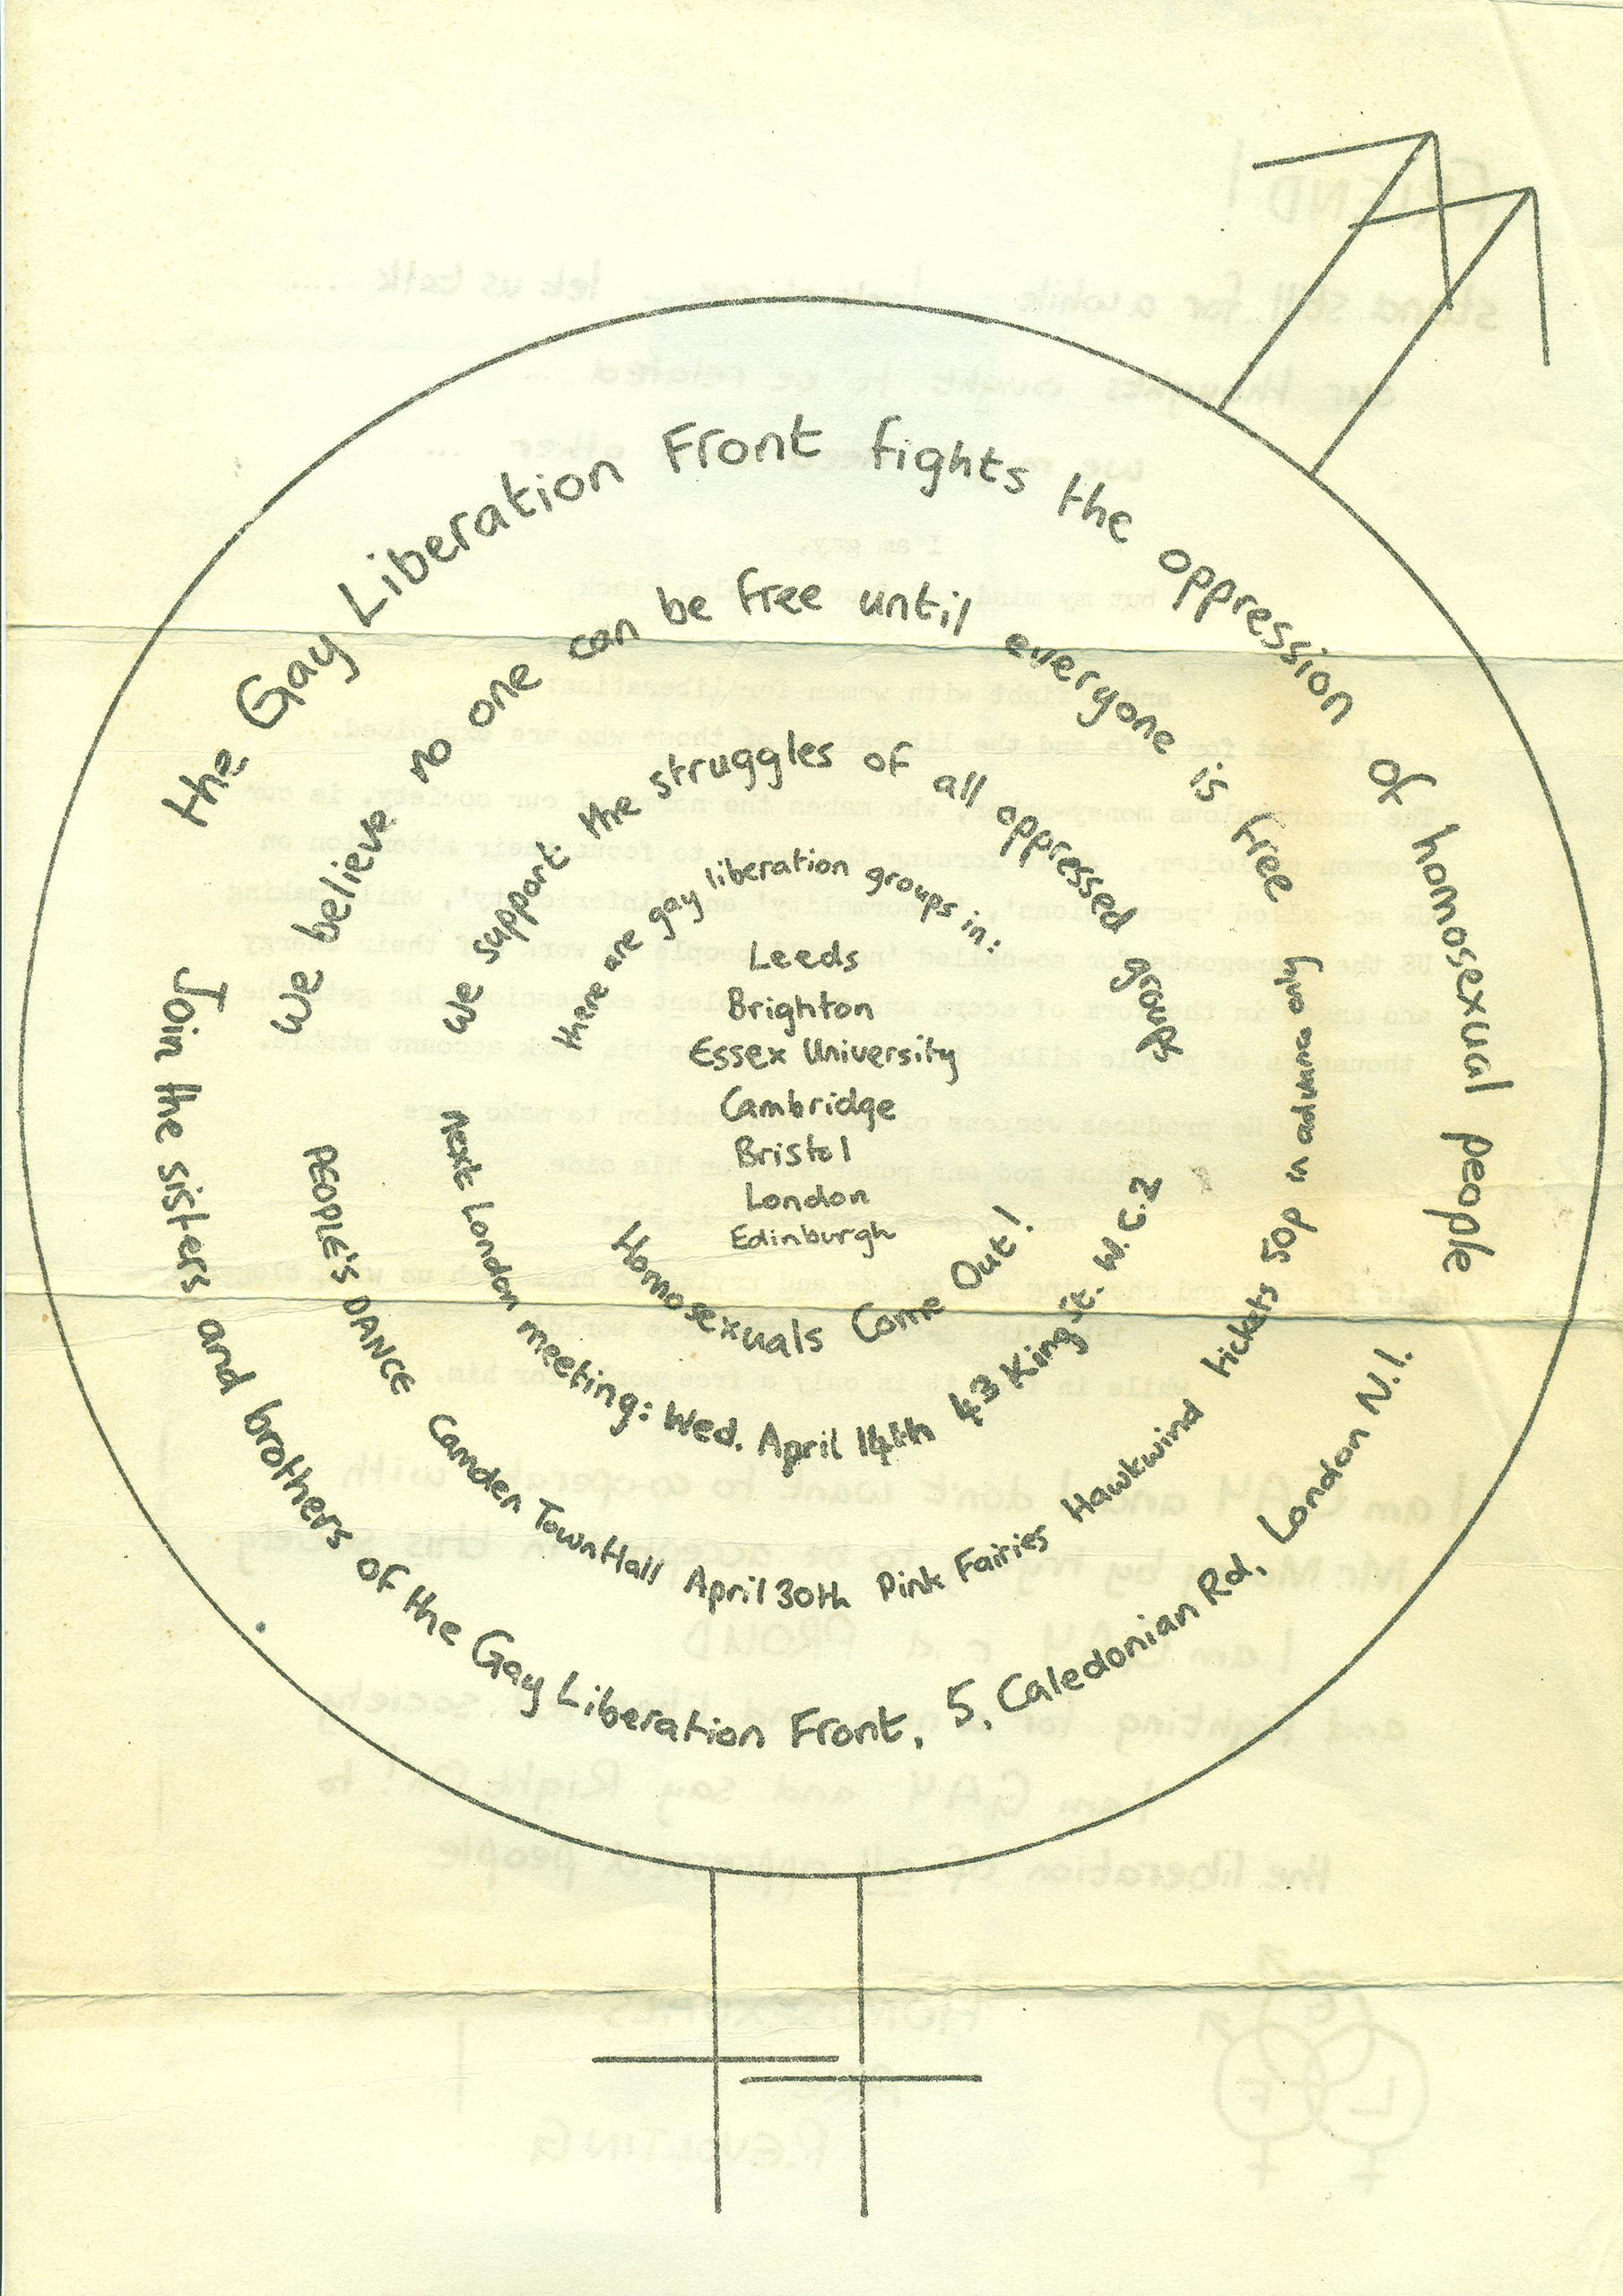 the Gay Liberation Front fights the oppression of homosexual people
We believe no one can be free until everyone is free
We support the struggles of all oppressed groups
there are gay liberation groups in:
Leeds
Brighton
Essex University
Cambridge
Bristol
London
Edinburgh
Homosexuals Come Out!
next London meeting: Wed. April 14th 43 King St. W.C.2
PEOPLE'S DANCE Camden Town Hall April 30th Pink Fairies Hawkwind tickets 50p in advance only
Join the sisters and brothers of the Gay Liberation Front, 5, Caledonian Rd, London N.1.